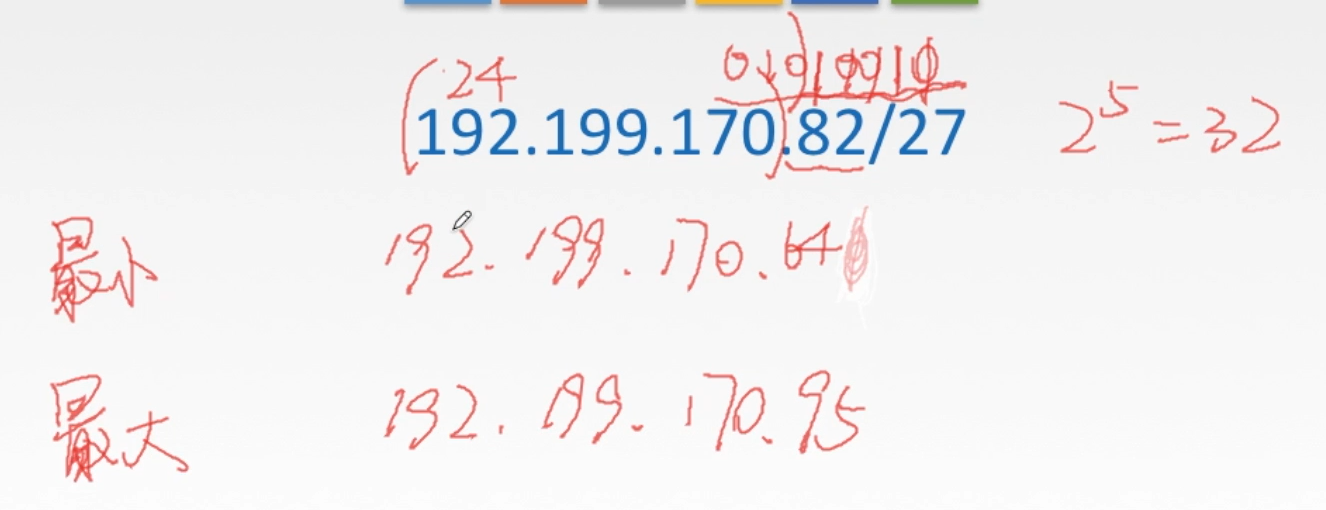 24 01010010
192.199.170.82/27 2^5=32
最小 192.199.170.64
最大 192.199.170.95